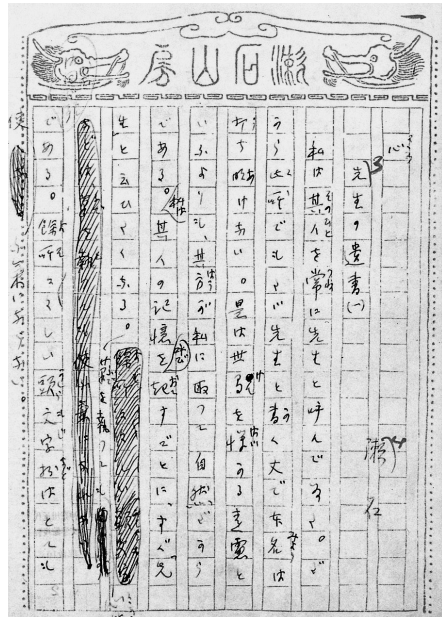 漱石山房
心
先生の遺書(一)
漱石
私は其人を常に先生と呼んでゐた。だ
から此所でもたゞ先生と書く丈で本名は
打ち明けない。是は世間を憚かる遠慮と
いふよりも、其方が私に取つて自然だから
である。私は其人の記憶を呼び起すごとに、すぐ先
生と云ひたくなる。
筆を執つても
である。餘所々々しい頭文字抔はとても
使ふ氣にならない。